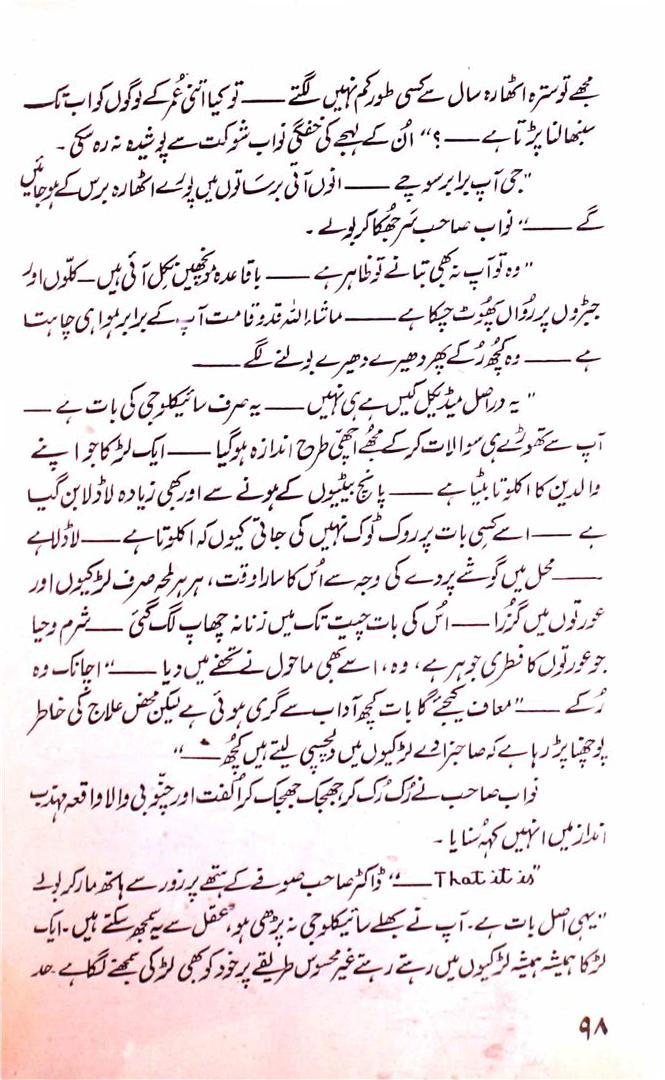 مجھے تو سترہ اٹھارہ سال سے کسی طور کم نہیں لگتے —— تو کیا اتنی عُمر کے لوگوں کو اب تک
سنبھالنا پڑتا ہے —— ؟" اُن کے لہجے کی خفگی نواب شوکت سے پوشیدہ نہ رہ سکی ۔
"جی آپ برابر سوچے —— انوں آتی برساتوں میں پورے اٹھارہ برس کے ہو جائیں
گے ——" نواب صاحب سَر جُھکا کر بولے ۔
"وہ تو آپ نہ بھی بتاتے تو ظاہر ہے —— باقاعدہ مونچھیں نکل آئی ہیں — کلّوں اور
جبڑوں پر رُواں پھُوٹ چکا ہے —— ماشاء اللہ قد و قامت آپ کے برابر ہوا ہی چاہتا
ہے —— وہ کچھ رُکے پھر دھیرے دھیرے بولنے لگے ——
"یہ در اصل میڈیکل کیس ہے ہی نہیں —— یہ صرف سائیکلوجی کی بات ہے —
آپ سے تھوڑے ہی سوالات کر کے مجھے اچھی طرح اندازہ ہو گیا —— ایک لڑکا جو اپنے
والدین کا اکلوتا بیٹا ہے —— پانچ بیٹیوں کے ہونے سے اور بھی زیادہ لاڈلا بن گیا
ہے —— اسے کسِی بات پر روک ٹوک نہیں کی جاتی کیوں کہ اکلوتا ہے —— لاڈلا ہے
—— محل میں گوشے پردے کی وجہ سے اُس کا سارا وقت، ہر ہر لمحہ صرف لڑکیوں اور
عورتوں میں گزُرا —— اُس کی بات چیت تک میں زنانہ چھاپ لگ گئی —— شرم و حیا
جو عورتوں کا فطری جوہر ہے، وہ، اسے بھی ماحول نے تحفے میں دیا ——" اچانک وہ
رُکے —— "معاف کیجئے گا بات کچھ آداب سے گری ہوئی ہے لیکن محض علاج کی خاطر
پوچھنا پڑ رہا ہے کہ صاحبزادے لڑکیوں میں دلچسپی لیتے ہیں کچُھ ——"
نواب صاحب نے رُک رُک کر جھجک جھجک کر اُلفت اور چنّوبی والا واقعہ مہذب
انداز میں انہیں کہہ سُنایا ۔
"That it is ——" ڈاکٹر صاحب صوفے کے ہتھے پر زور سے ہاتھ مار کر بولے
"یہی اصل بات ہے ۔ آپ نے بھلے سائیکلوجی نہ پڑھی ہو، عقل سے یہ سمجھ سکتے ہیں ۔ ایک
لڑکا ہمیشہ ہمیشہ لڑکیوں میں رہتے رہتے غیر محسوس طریقے پر خود کو بھی لڑکی سمجھنے لگا ہے ۔ حد
۹۸